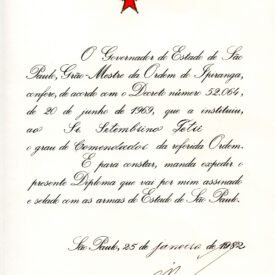 O Governador do Estado de São
Paulo, Grão-Mestre da Ordem do Ipiranga,
confere, de acordo com o Decreto número 52.064,
de 20 de junho de 1969, que a instituiu,
ao Sr. Setembrino
o grau de Comendador da referida Ordem.
E para constar, manda expedir o
presente Diploma que vai por mim assinado
e selado com as armas do Estado de São Paulo.
São Paulo, 25 de janeiro de 1982